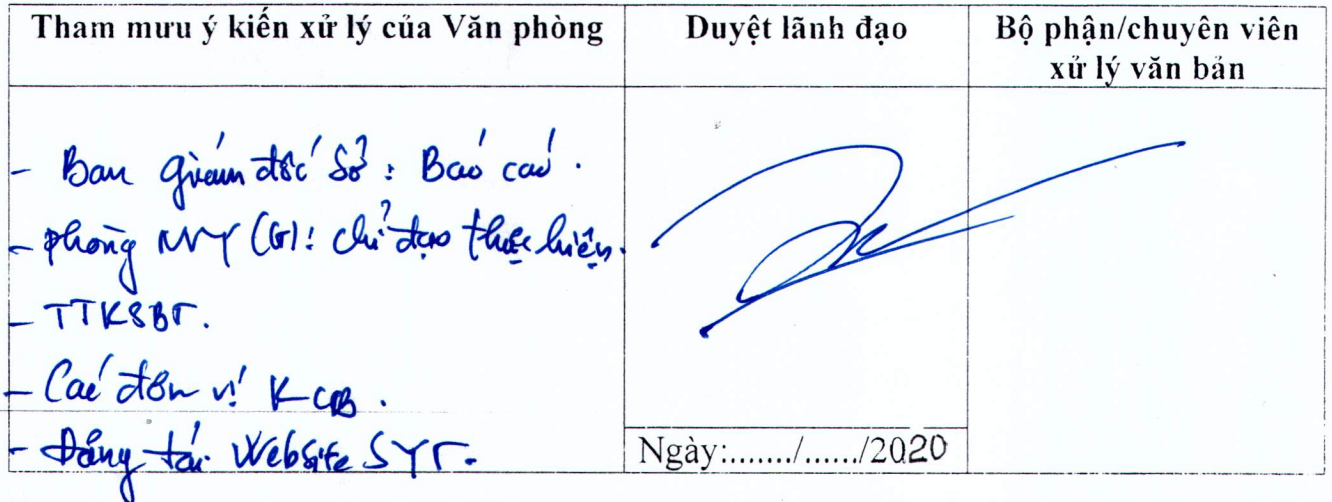 Tham mưu ý kiến xử lý của Văn phòng
Duyệt lãnh đạo
Bộ phận/chuyên viên
xử lý văn bản
- Ban giám đốc Sở : Báo cáo .
- phòng NVY (G): chỉ đạo thực hiện.
- TTKSBT.
- Các đơn vị KCB .
- Đăng tải Website SYT.
Ngày:......./....../2020